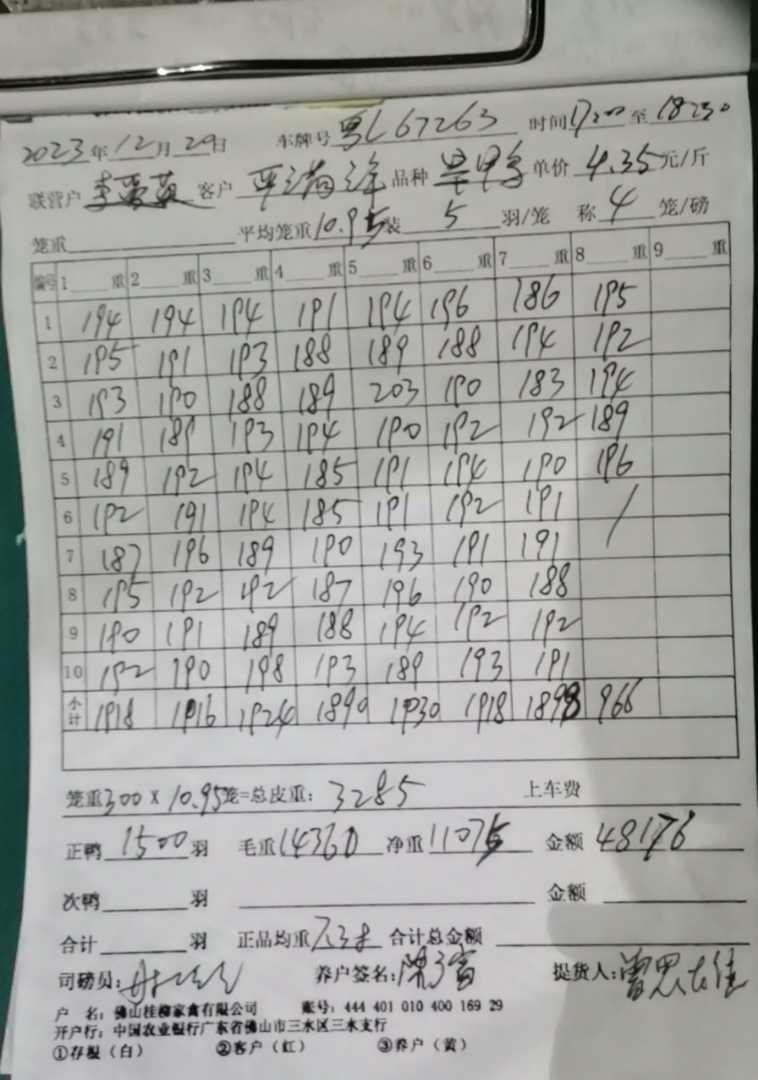 2023年12月29日 车牌号粤L67263 时间17:00至18:30
联营户李爱英 客户 品种旱鸭 单价4.35元/斤
笼重 平均笼重10.95装5羽/笼 称4笼/磅
编号 1重 2重 3重 4重 5重 6重 7重 8重 9重
1 194 194 194 191 194 196 186 195
2 195 191 193 188 189 188 194 192
3 193 190 188 189 203 190 183 194
4 191 189 193 194 190 192 192 189
5 189 192 194 185 191 194 190 196
6 192 191 194 185 191 192 191 /
7 187 196 189 190 193 191 191
8 195 192 192 187 196 190 188
9 190 191 189 188 194 192 192
10 192 190 198 193 189 193 191
小计 1918 1916 1924 1890 1930 1918 1898 966
笼重300×10.95笼=总皮重:3285 上车费
正鸭1500羽 毛重14360 净重11075 金额48176
次鸭羽 金额
合计羽 正品均重 合计总金额
司磅员: 养户签名: 提货人:
户 名:佛山桂柳家禽有限公司 账号:444 401 010 400 169 29
开户行:中国农业银行广东省佛山市三水区三水支行
①存根(白) ②客户(红) ③养户(黄)